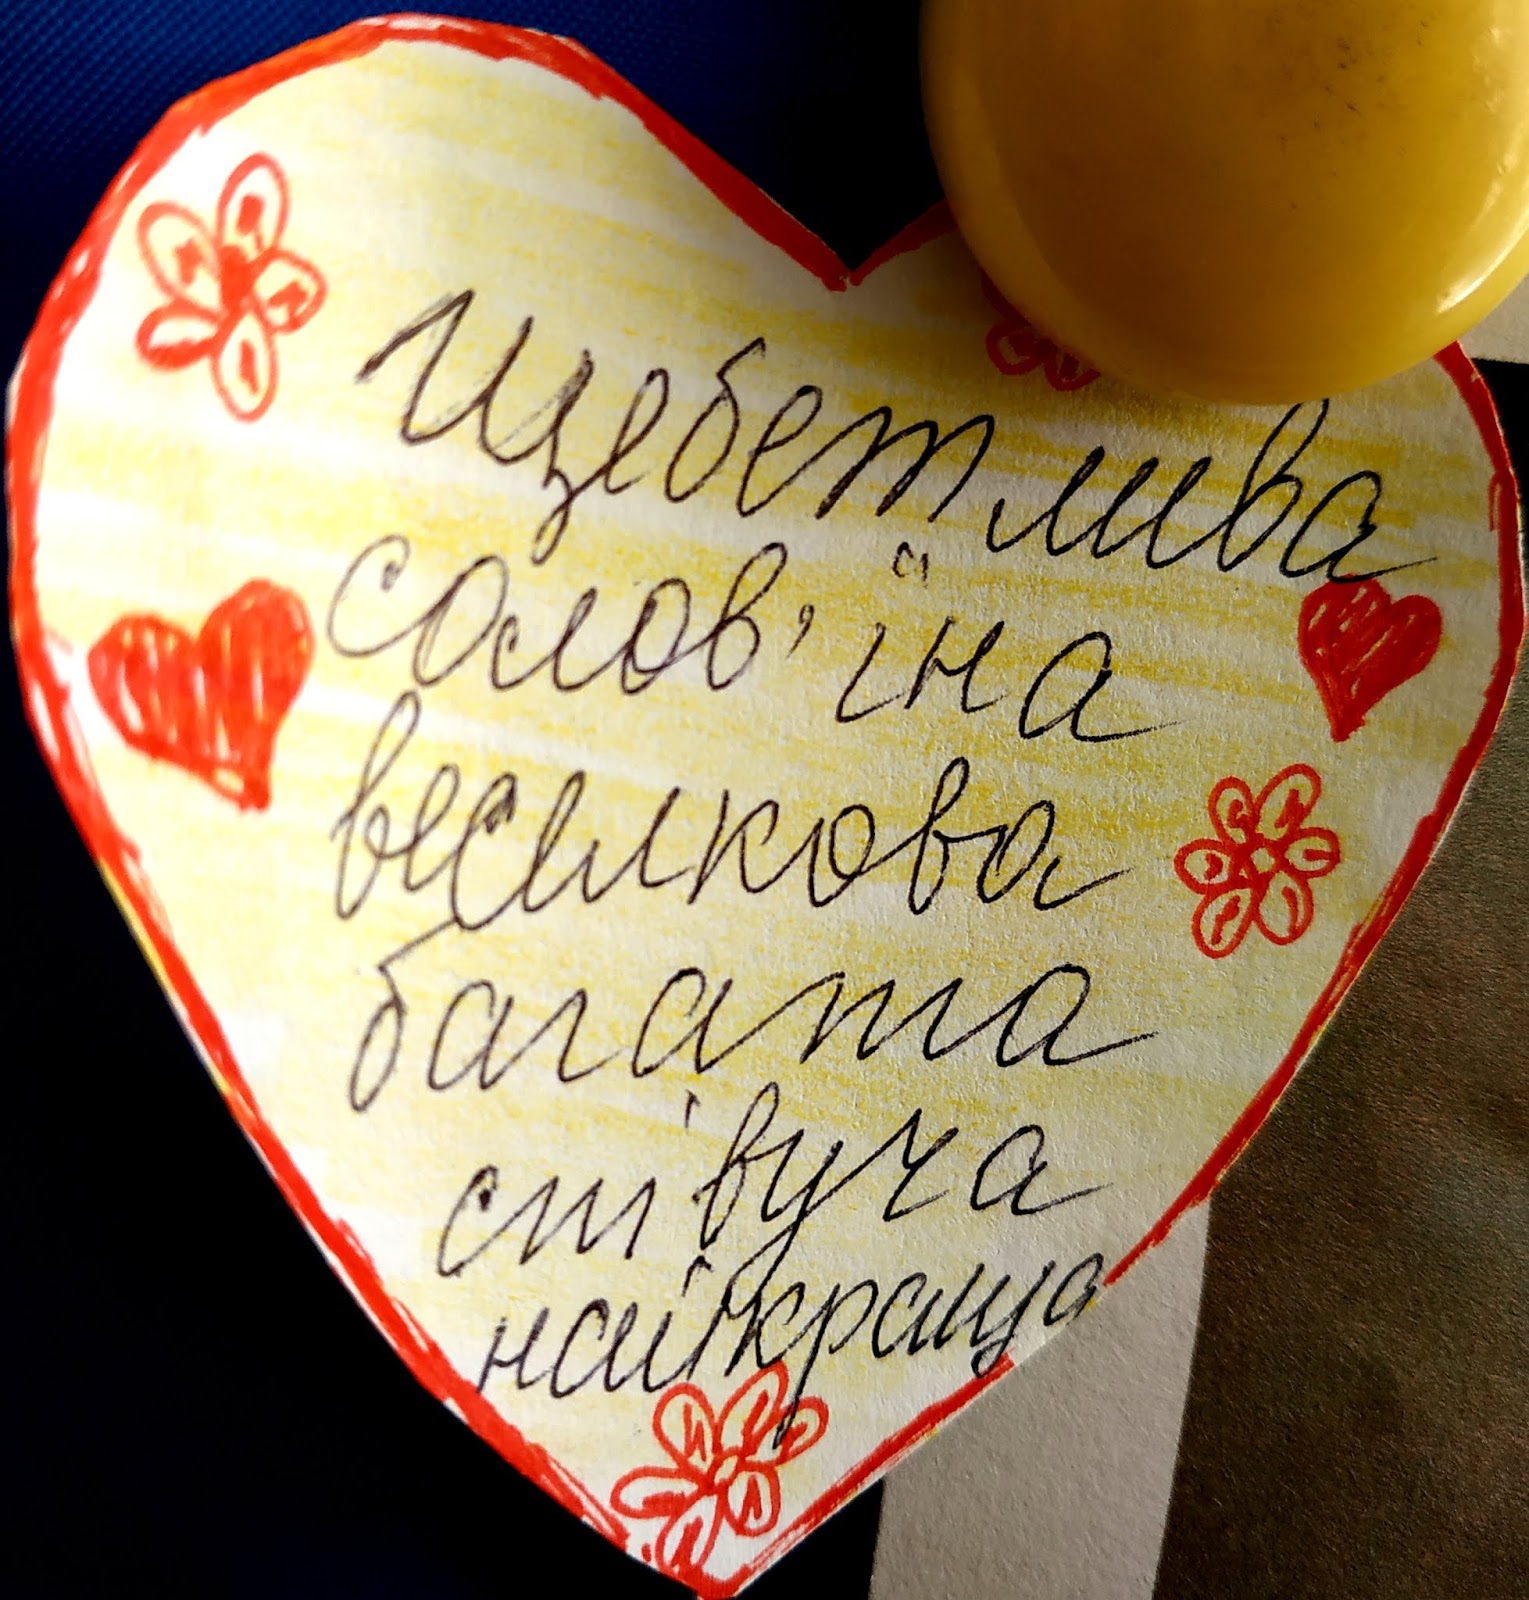 Щебетлива
солов'їна
веселкова
багата
співуча
найкраща